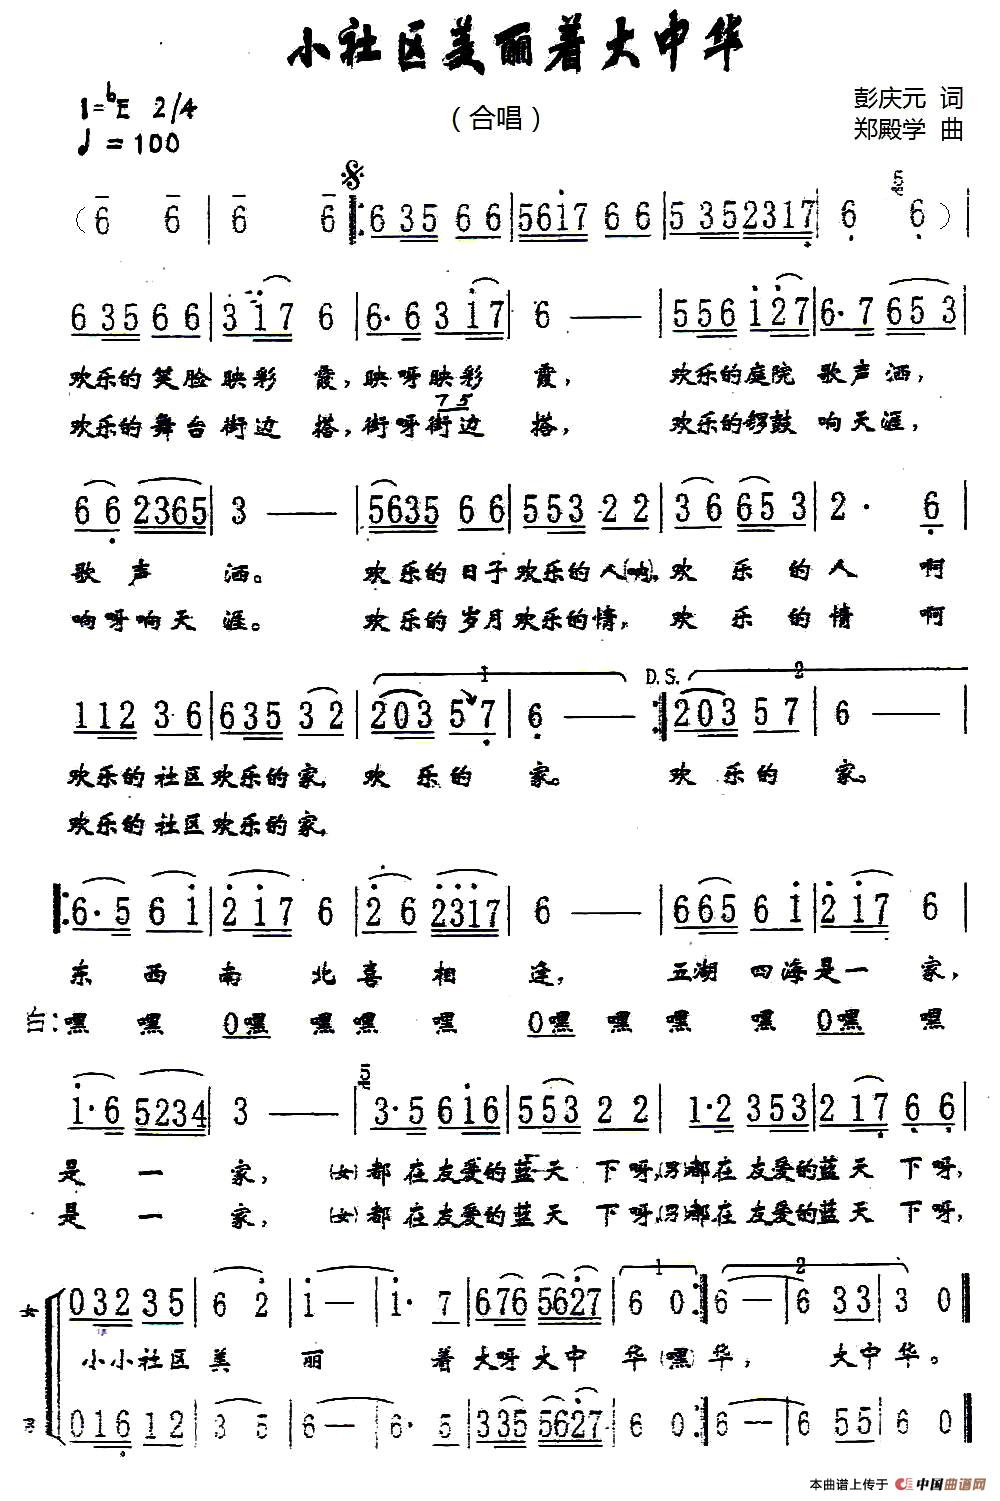 小社区美丽着大中华
1=bE 2/4
（合唱）
彭庆元 词
♩=100
郑殿学 曲
（6 6 | 6 6 |: 6 35 6 6 | 5617 6 6 | 5 35 2317 | 6 6 ）|
6 35 6 6 | 3 17 6 | 6· 6 3 17 | 6 — | 5 56 1 27 | 6· 7 65 3 |
欢乐的笑脸映彩霞，映呀映彩霞， 欢乐的庭院歌声洒，
7 5
欢乐的舞台街边搭，街呀街边搭， 欢乐的锣鼓响天涯，
6 6 2365 | 3 — | 5635 6 6 | 5 53 2 2 | 3 6 65 3 | 2· 6 |
歌声洒。 欢乐的日子欢乐的人(呐)，欢乐的人啊
响呀响天涯。 欢乐的岁月欢乐的情，欢乐的情啊
1 D.S. 2
1 12 3 6 | 6 35 3 2 | 2 03 5 7 | 6 — :| 2 03 5 7 | 6 — |
欢乐的社区欢乐的家，欢乐的家。 欢乐的家。
欢乐的社区欢乐的家，
|: 6· 5 6 1 | 2 17 6 | 2 6 2317 | 6 — | 6 65 6 1 | 2 17 6 |
东西南北喜相逢， 五湖四海是一家，
白：嘿 嘿 0嘿 嘿 嘿 嘿 0嘿 嘿 嘿 嘿 0嘿 嘿
1· 6 5234 | 3 — | 3· 5 6 16 | 5 53 2 2 | 1· 2 3 53 | 2 17 6 6 |
是一家， (女)都在友爱的蓝天下呀，(男)都在友爱的蓝天下呀，
是一家， (女)都在友爱的蓝天下呀，(男)都在友爱的蓝天下呀，
1 2
女 0 32 3 5 | 6 2 | 1 — | 1· 7 | 6 76 5627 | 6 0 :| 6 — | 6 3 3 | 3 0 ‖
小小社区美丽着大呀大中华(嘿)华，大中华。
男 0 16 1 2 | 3 5 | 6 — | 6· 5 | 3 35 5627 | 6 0 :| 6 — | 6 5 5 | 6 0 ‖
本曲谱上传于 中国曲谱网